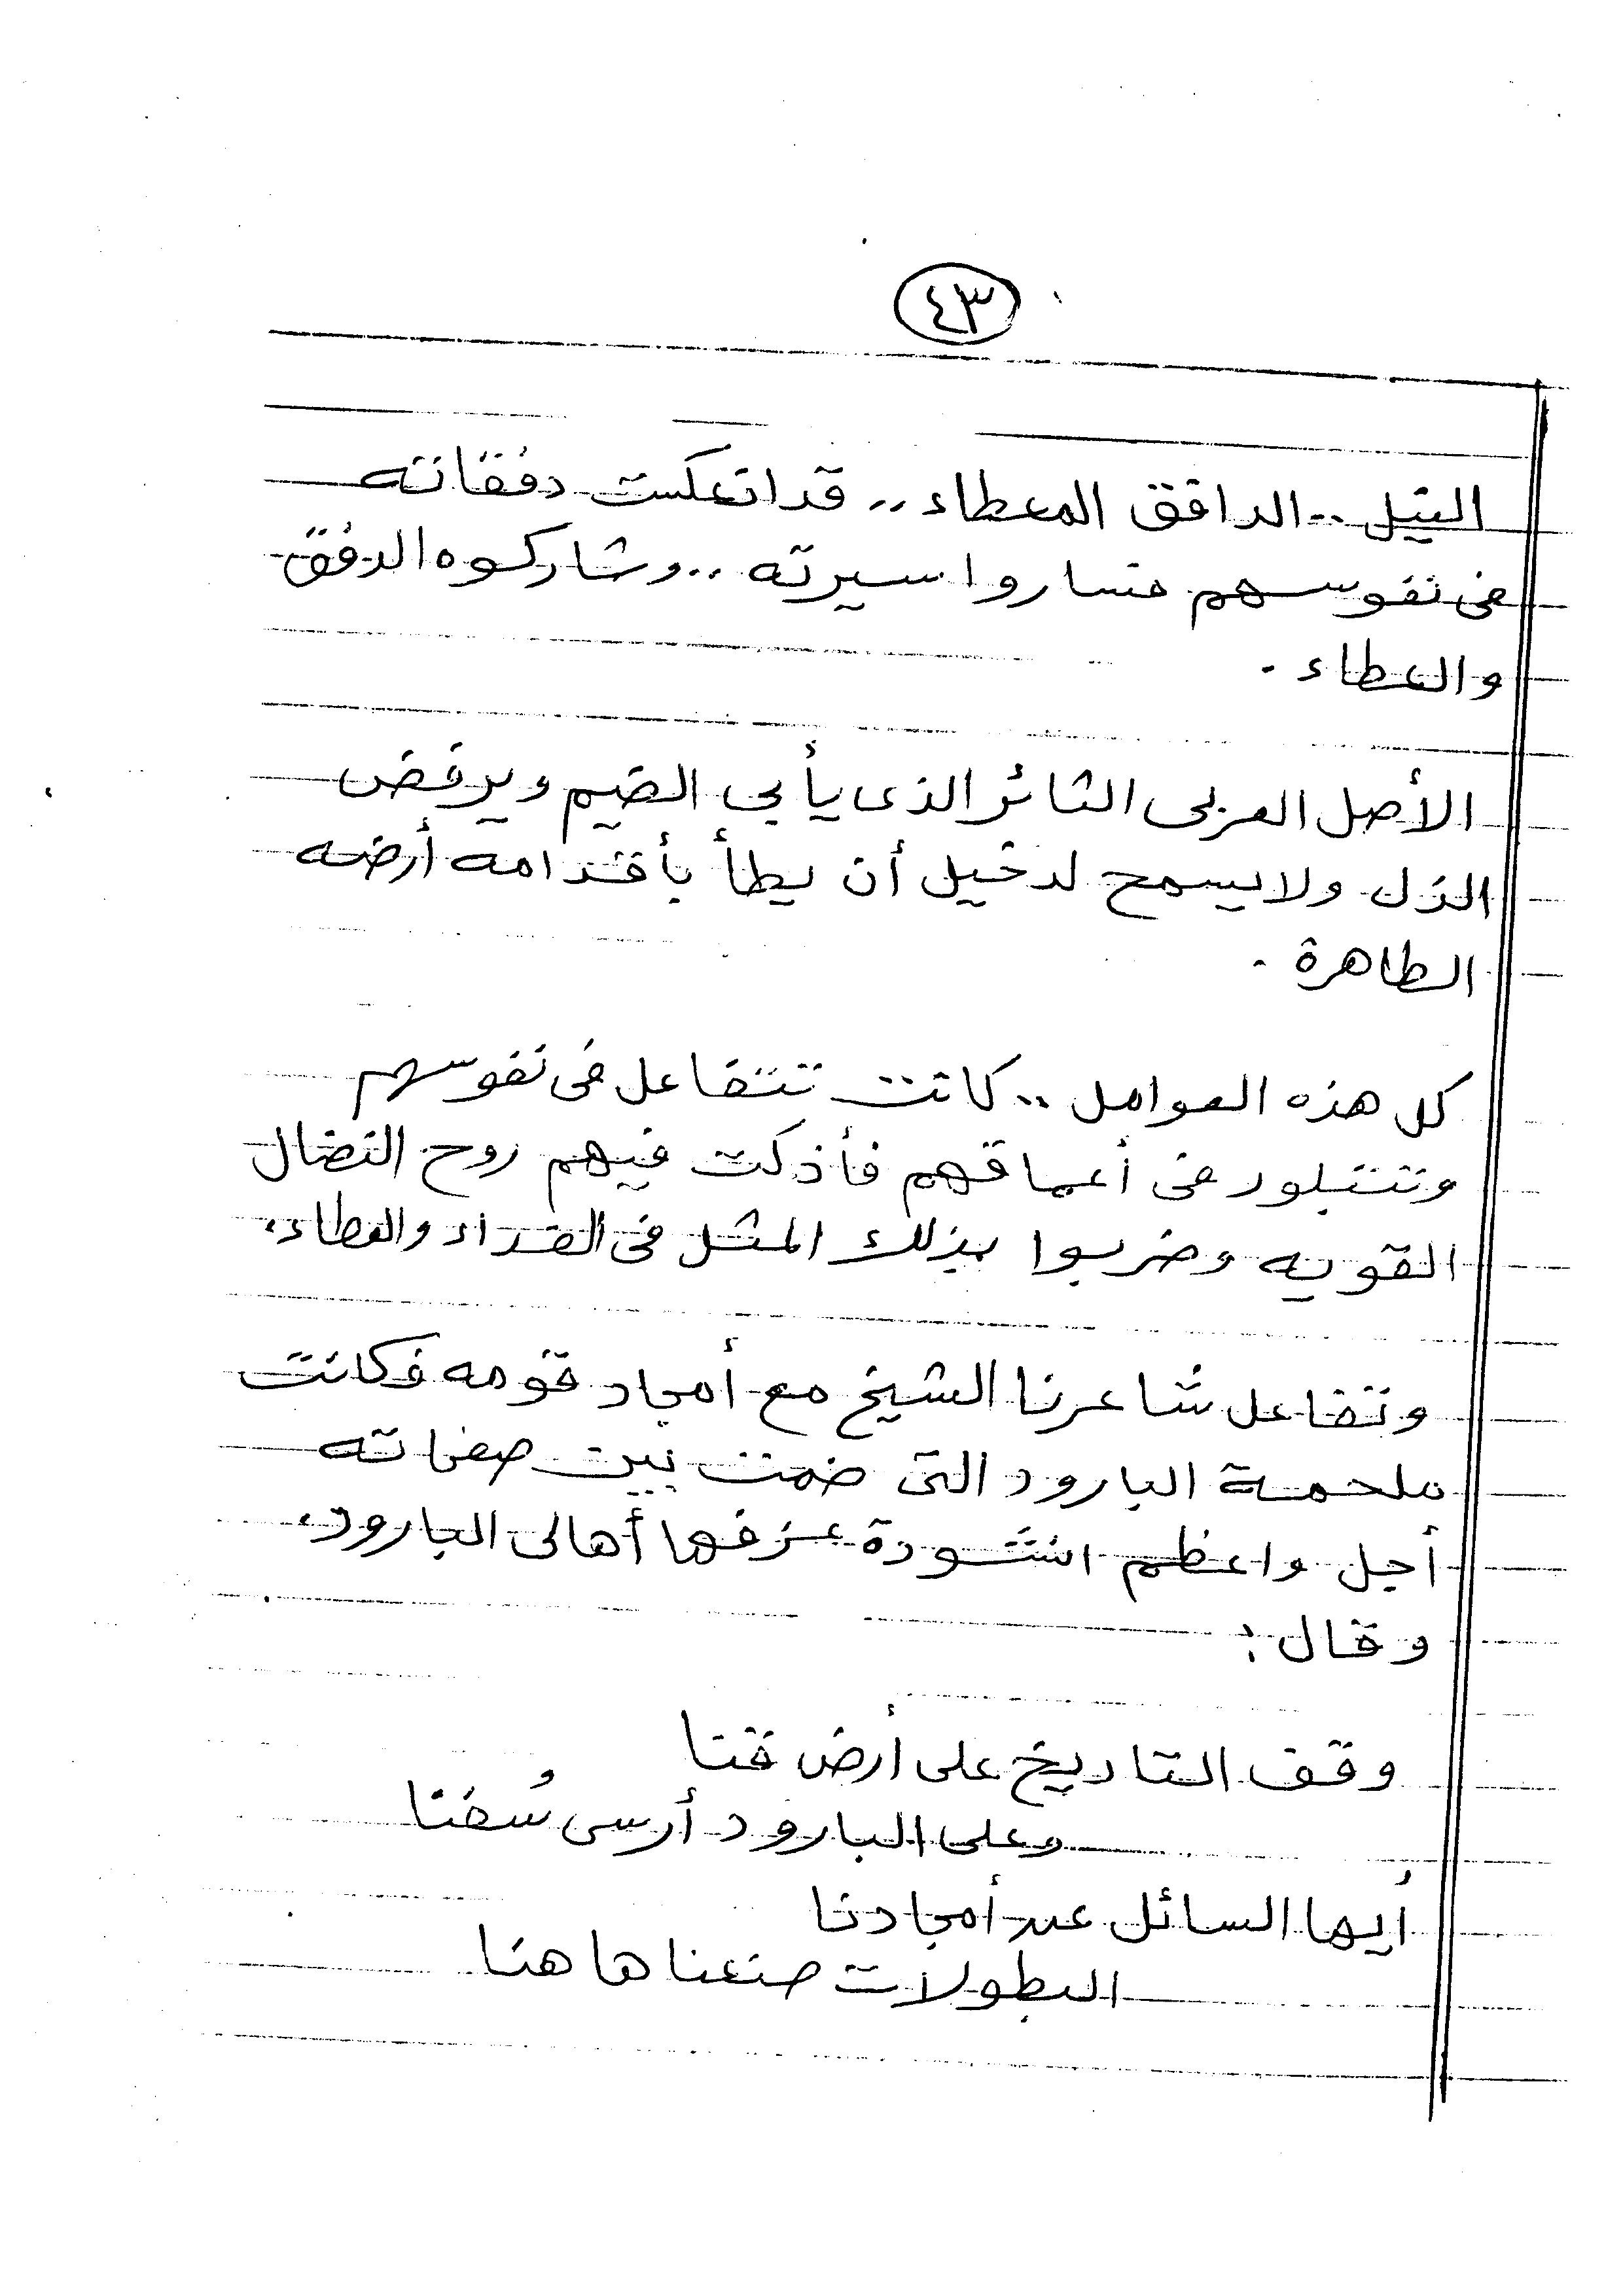 ٤٣
النيل .. الدافق المعطاء .. قد انعكست دفقاته
فى نفوسهم فساروا سيرته .. وشاركوه الدفق
والعطاء .
الأصل العربى الثائر الذى يأبى الضيم ويرفض
الذل ولا يسمح لدخيل أن يطأ بأقدامه أرضه
الطاهرة .
كل هذه العوامل .. كانت تتفاعل فى نفوسهم
وتتبلور فى أعماقهم فأذكت فيهم روح النضال
القويه وضربوا بذلك المثل فى الفداء والعطاء،
وتفاعل شاعرنا الشيخ مع أمجاد قومه فكانت
ملحمة البارود التى ضمت بين صفحاته
أجل واعظم انشودة عزفها أهالى البارود،
وقال :
وقف التاريخ على أرض قنا
وعلى البارود أرسى سُفنا
أيها السائل عن أمجادنا
البطولات صنعناها هنا